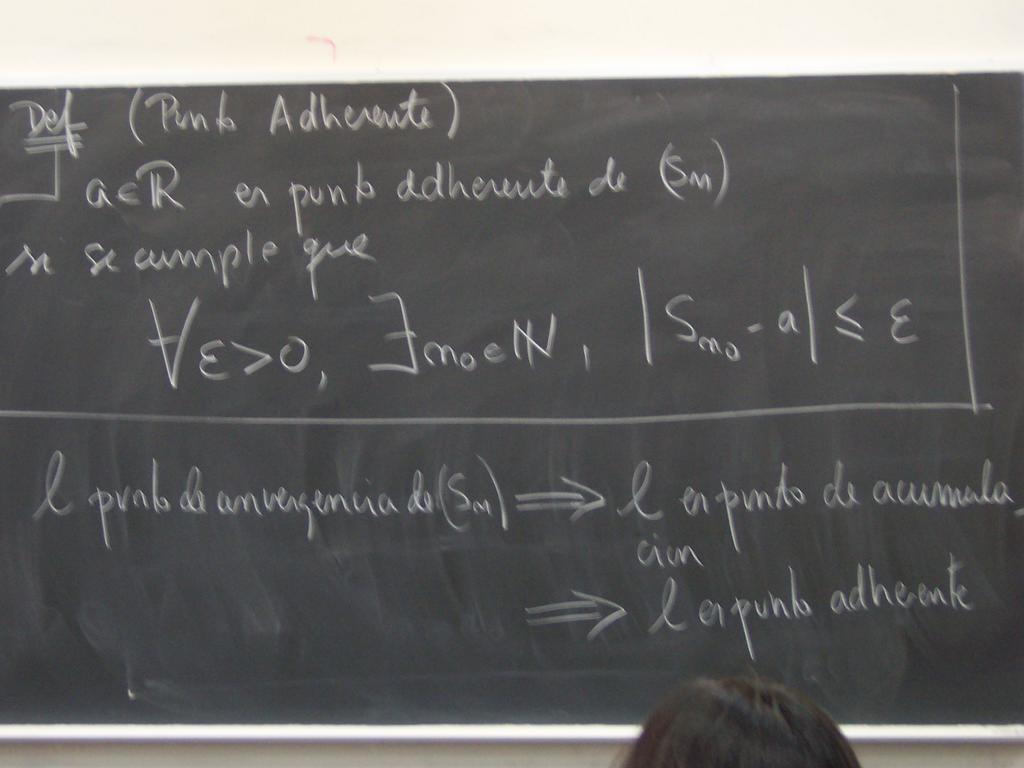 Def (Punto Adherente)
a ∈ ℝ es punto adherente de (Sn)
si se cumple que
∀ ε > 0, ∃ n₀ ∈ ℕ, |Sn₀ - a| ≤ ε
l punto de convergencia de (Sn) ⟹ l es punto de acumula-
cion
⟹ l es punto adherente